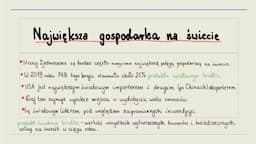 Największa gospodarka na świecie
• Stany Zjednoczone są bardzo często nazywane największą potęgą gospodarczą na świecie.
• W 2019 roku PKB tego kraju stanowiło około 25% produktu światowego brutto.
• USA jest największym światowym importerem i drugim (po Chinach) eksporterem.
• Kraj ten zajmuje wysokie miejsca w wydobyciu wielu surowców.
• Są światowym liderem pod względem zagranicznych inwestycji.
produkt światowy brutto - wartość wszystkich wytworzonych towarów i świadczonych
usług na świecie w ciągu roku.